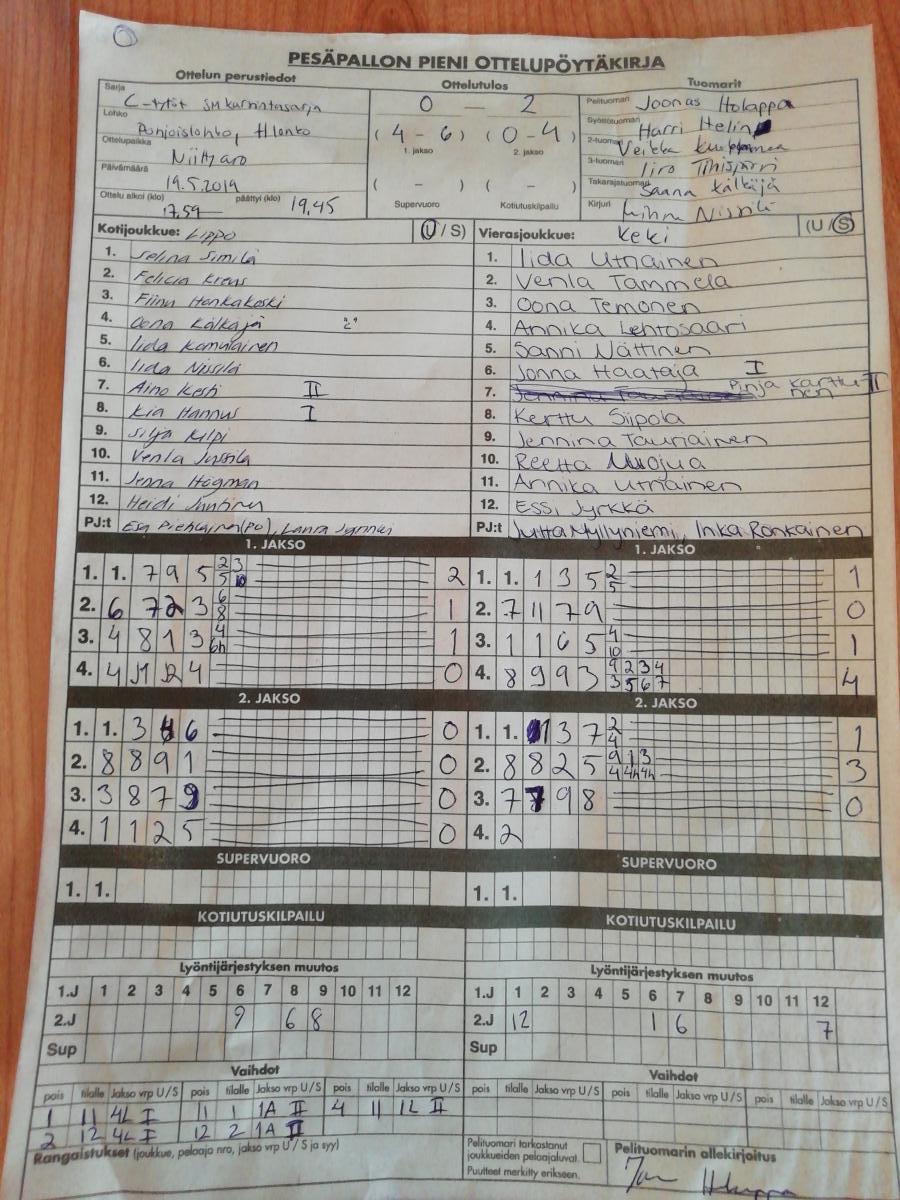 PESÄPALLON PIENI OTTELUPÖYTÄKIRJA
Ottelun perustiedot Ottelutulos Tuomarit
Sarja
C-tytöt SM karsintasarja
Lohko
Pohjoislohko, H lohko
Ottelupaikka
Niittyaro
Päivämäärä
19.5.2019
Ottelu alkoi (klo) päättyi (klo)
17.59 19.45
0 — 2
(4 - 6) (0 - 4)
1. jakso 2. jakso
( - ) ( - )
Supervuoro Kotiutuskilpailu
Pelituomari Joonas Holappa
Syöttötuomari Harri Helin
2-tuomari Veikka
3-tuomari Iiro
Takarajatuomari Saana Kälkäjä
Kirjuri Nissilä
Kotijoukkue: Lippo (U / S)
1. Selina Similä
2. Felicia
3. Fiinu Honkakoski
4. Oona Kälkäjä 2"
5. Iida Komulainen
6. Iida Nissilä
7. Aino Kesti II
8. Kia Hannus I
9. Silja Kilpi
10. Venla Jussila
11. Jenna Högman
12. Heidi Juntinen
PJ:t Esa (PO), Laura
Vierasjoukkue: Keki (U / S)
1. Iida Utriainen
2. Venla Tammela
3. Oona Temonen
4. Annika Lehtosaari
5. Sanni Nättinen
6. Jonna Haataja I
7. Pinja Karttunen II
8. Kerttu Siipola
9. Jennina Tauriainen
10. Reetta Muojua
11. Annika Utriainen
12. Essi Jyrkkä
PJ:t Jutta Myllyniemi, Inka Ronkainen
1. JAKSO
1. 1. 7 9 5 2 3 2
5 10
2. 6 7 2 3 6 1
8
3. 4 8 1 3 4 1
6h
4. 4 11 12 4 0
1. JAKSO
1. 1. 1 3 5 2 1
5
2. 7 11 7 9 0
3. 1 1 6 5 4 1
10
4. 8 9 9 3 9 2 3 4 4
3 5 6 7
2. JAKSO
1. 1. 3 6 0
2. 8 8 9 1 0
3. 3 8 7 9 0
4. 1 1 2 5 0
2. JAKSO
1. 1. 1 3 7 2 1
4
2. 8 8 2 5 9 1 3 3
4 4h 4h
3. 7 9 8 0
4. 2
SUPERVUORO SUPERVUORO
1. 1. 1. 1.
KOTIUTUSKILPAILU KOTIUTUSKILPAILU
Lyöntijärjestyksen muutos
1.J 1 2 3 4 5 6 7 8 9 10 11 12
2.J 9 6 8
Sup
Lyöntijärjestyksen muutos
1.J 1 2 3 4 5 6 7 8 9 10 11 12
2.J 12 1 6 7
Sup
Vaihdot
pois tilalle Jakso vrp U / S pois tilalle Jakso vrp U / S pois tilalle Jakso vrp U / S
1 11 4L I 11 1 1A II 4 11 1L II
2 12 4L I 12 2 1A II
Vaihdot
pois tilalle Jakso vrp U / S pois tilalle Jakso vrp U / S pois tilalle Jakso vrp U / S
Rangaistukset (joukkue, pelaaja nro, jakso vrp U / S ja syy)
Pelituomari tarkastanut
joukkueiden pelaajaluvat.
Puutteet merkitty erikseen.
Pelituomarin allekirjoitus